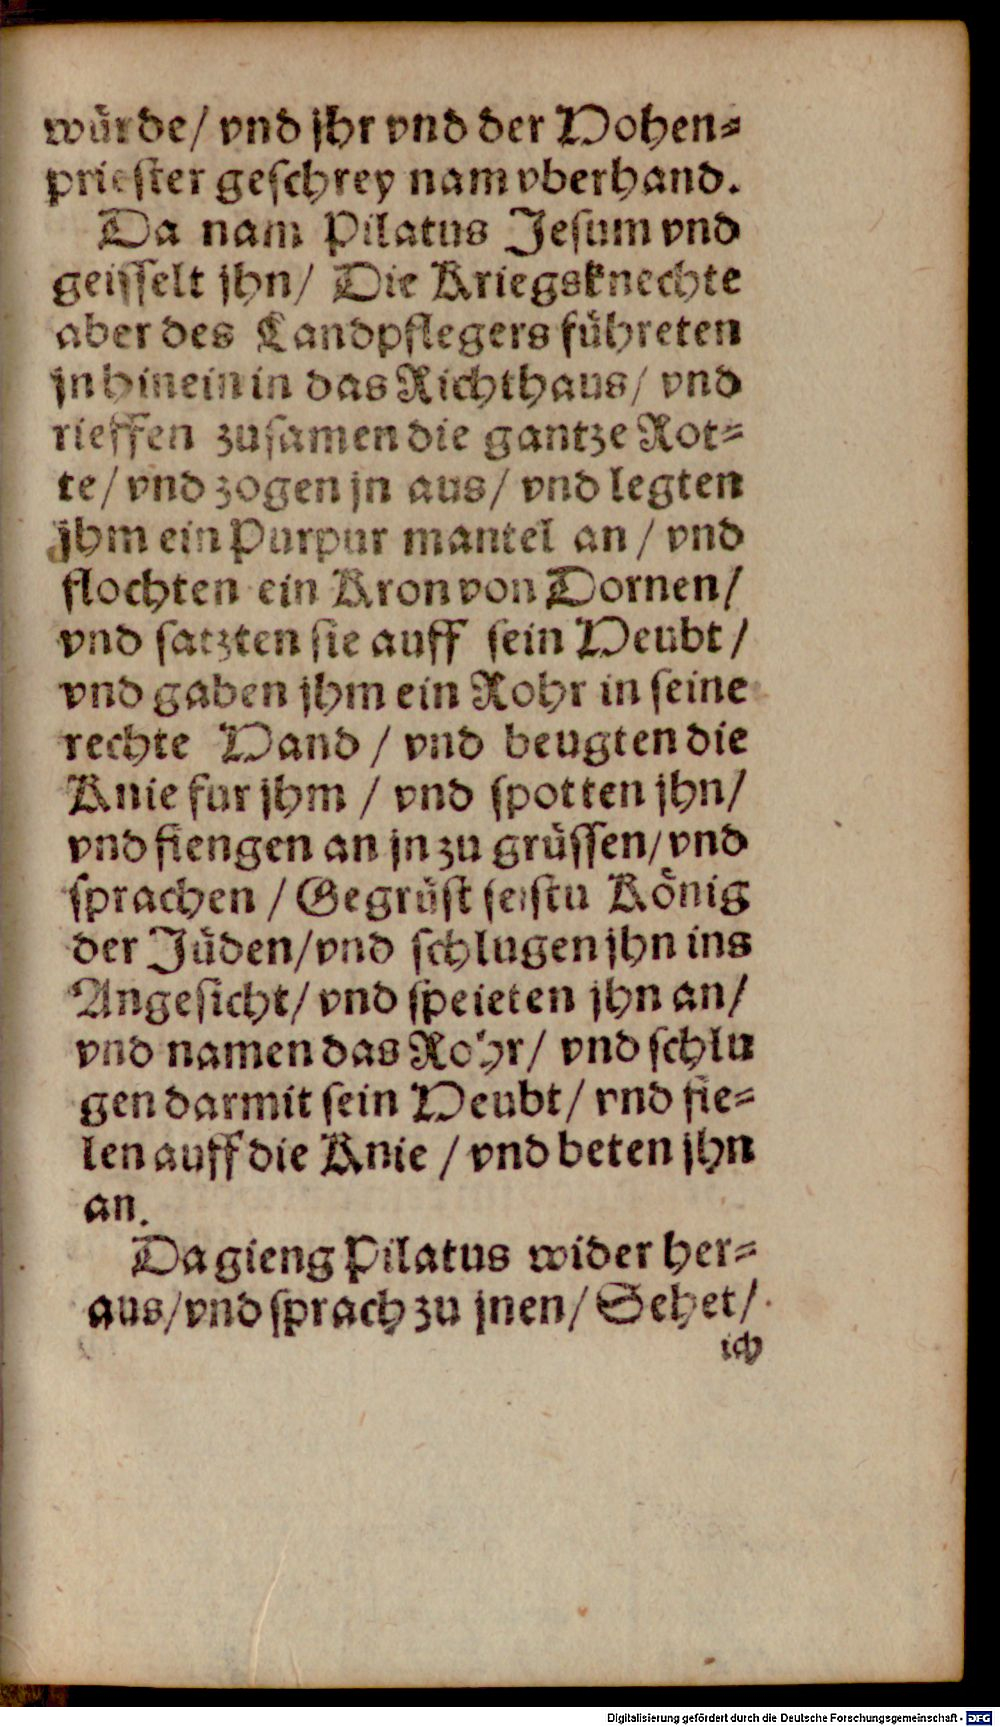 wůrde/ vnd jhr vnd der Hohen⸗
prieſter geſchrey nam vberhand.
Da nam Pilatus Jeſum vnd
geiſſelt jhn/ Die Kriegsknechte
aber des Landpflegers fůhreten
jn hinein in das Richthaus/ vnd
rieffen zuſamen die gantze Rot⸗
te/ vnd zogen jn aus/ vnd legten
jhm ein Purpur mantel an / vnd
flochten ein Kron von Dornen/
vnd ſatzten ſie auff ſein Heubt /
vnd gaben jhm ein Rohr in ſeine
rechte Hand / vnd beugten die
Knie fur jhm / vnd ſpotten jhn/
vnd fiengen an jn zu grůſſen/ vnd
ſprachen / Gegrůſt ſeiſtu Kőnig
der Jůden/ vnd ſchlugen jhn ins
Angeſicht/ vnd ſpeieten jhn an/
vnd namen das Rohr/ vnd ſchlu
gen darmit ſein Heubt/ vnd fie⸗
len auff die Knie / vnd beten jhn
an.
Da gieng Pilatus wider her⸗
aus/ vnd ſprach zu jnen/ Sehet/
ich
Digitalisierung gefördert durch die Deutsche Forschungsgemeinschaft - DFG